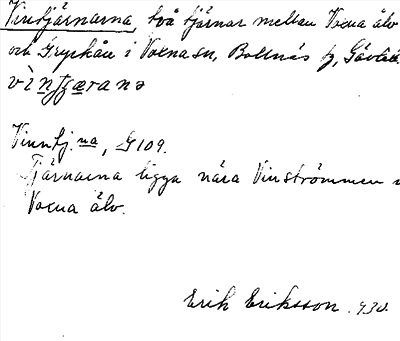 Vintjärnarna, två tjärnar mellan Voxna älv
och Grycksån i Voxna sn, Bollnäs tg, Gävleb.
Vinntj. na, G109.
Tjärnarna ligga nära Vinströmmen i
Voxna älv.
Erik Eriksson. 930.